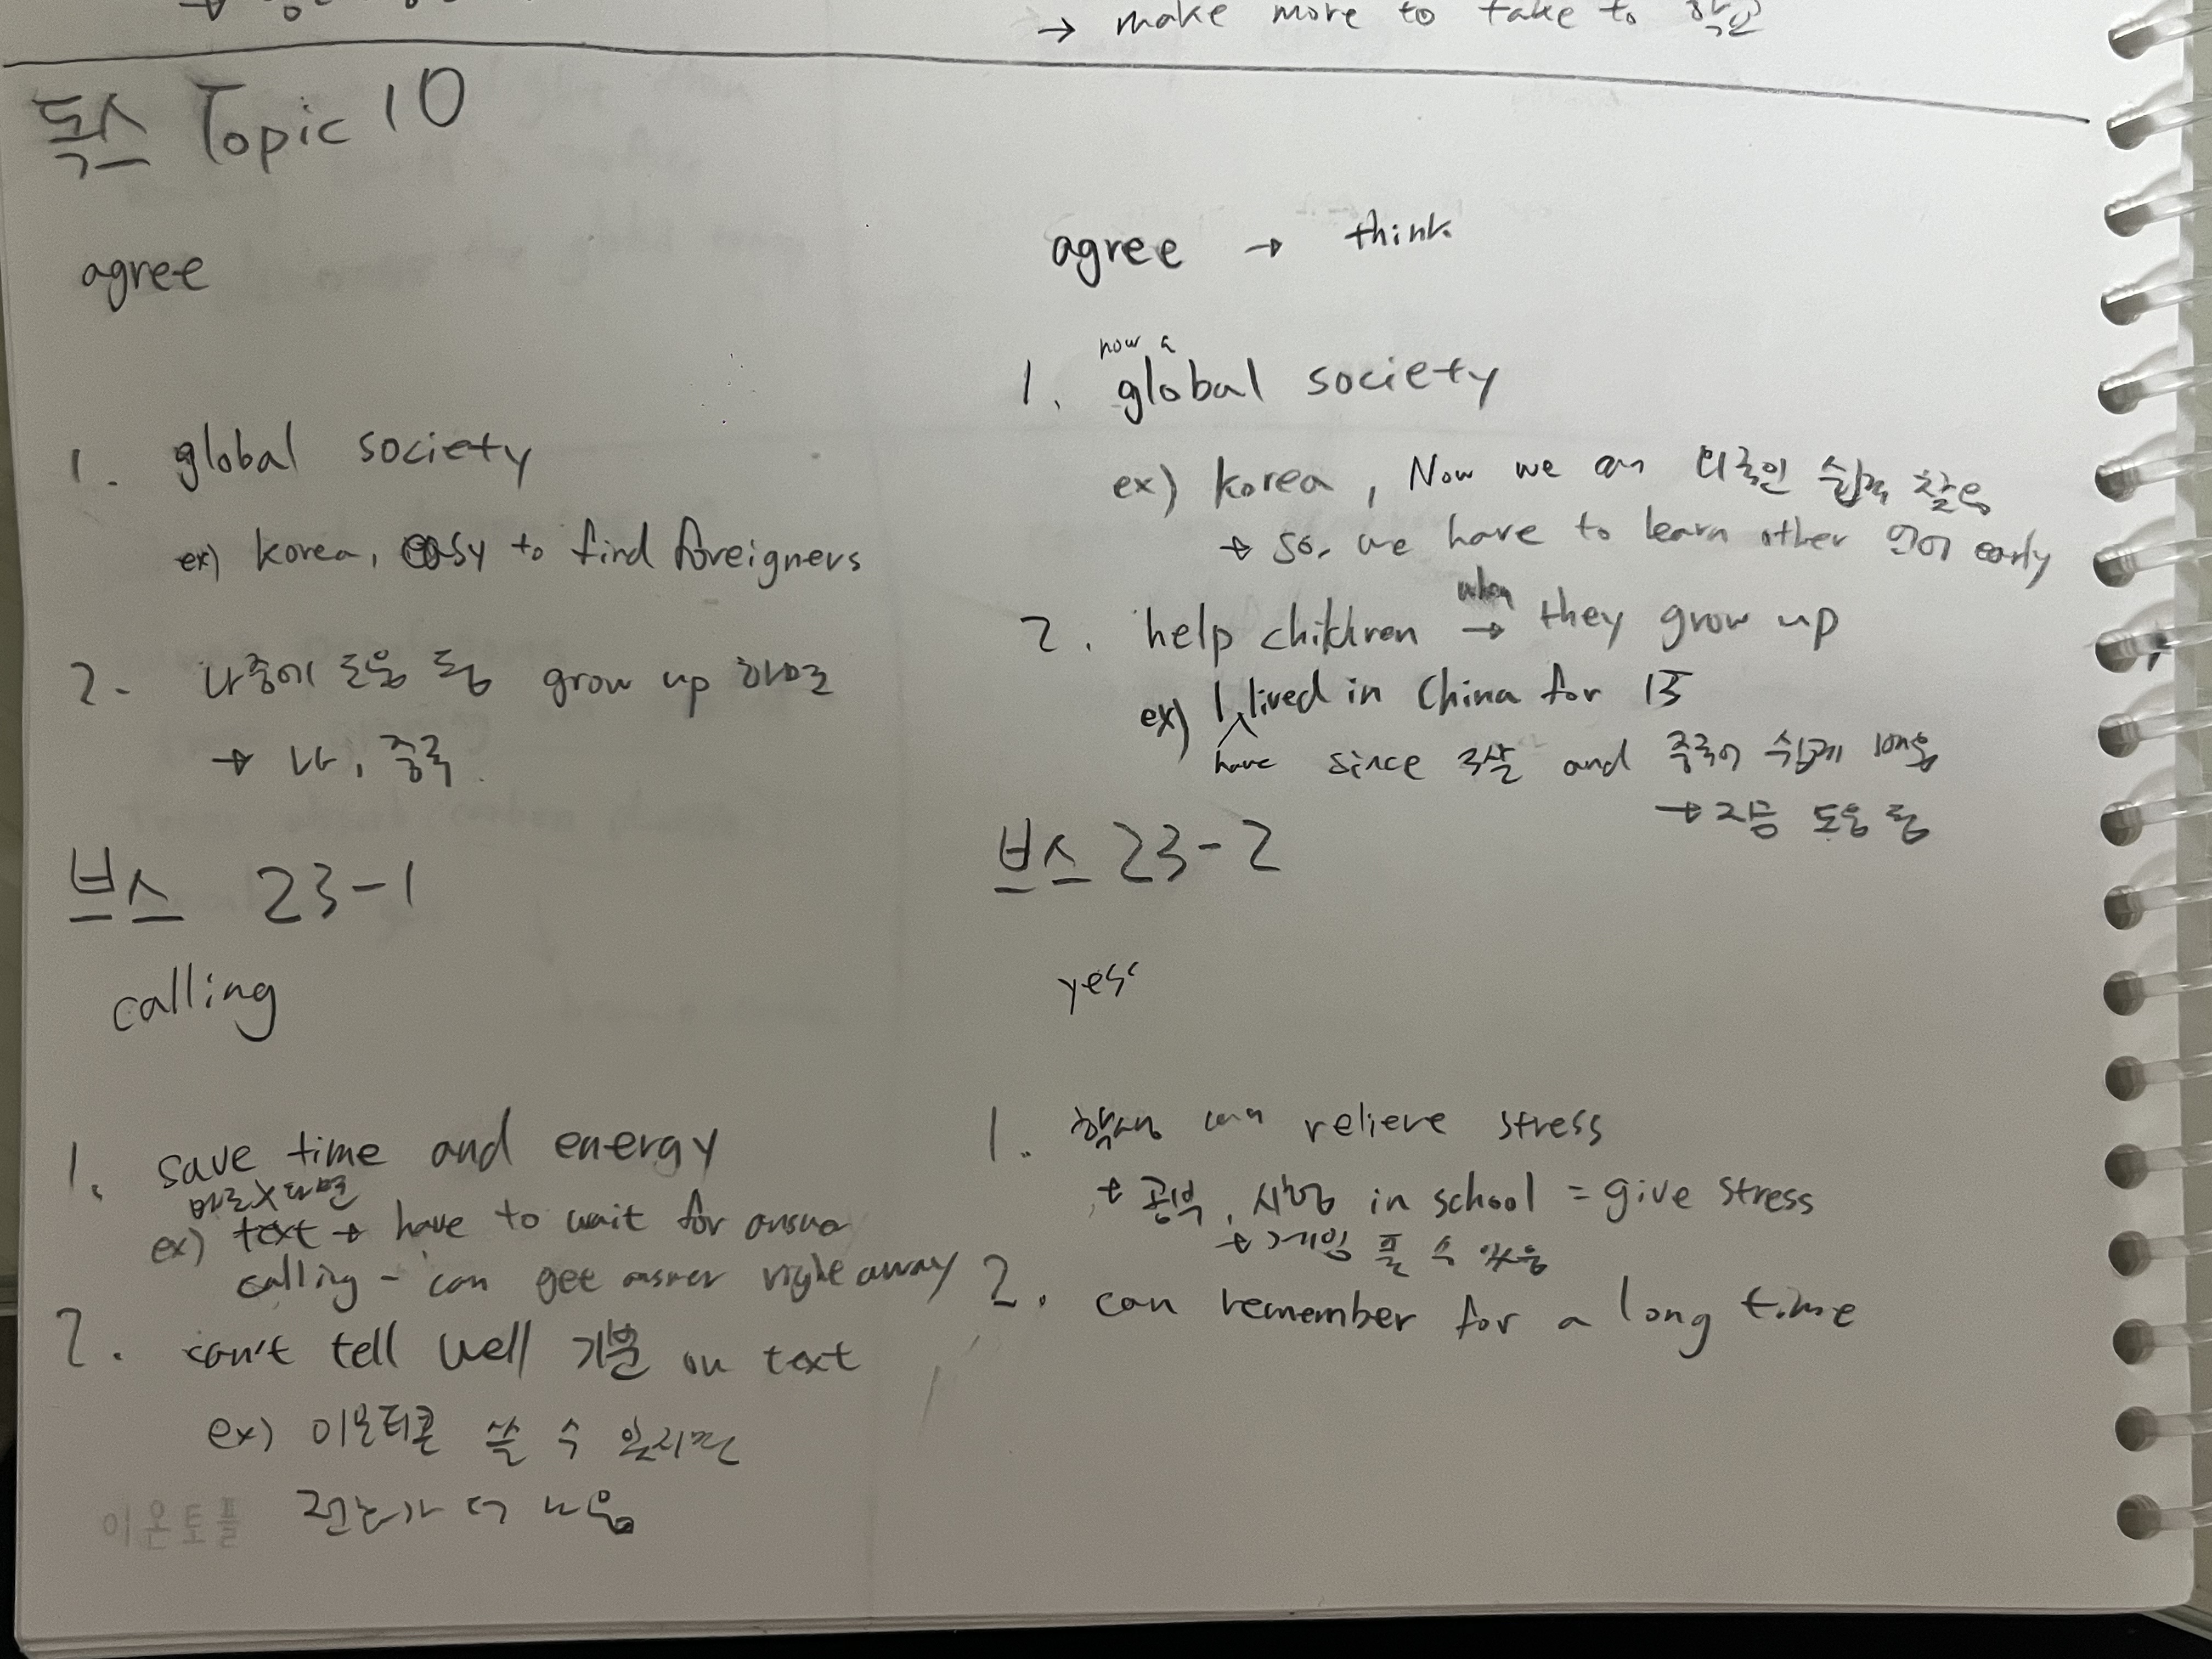 → make more to take to 학교
톡스 Topic 10
agree
1. global society
ex) korea, easy to find foreigners
2. 나중에 도움 됨 grow up 하면
→ 나, 중국.
agree → think
now a
1. global society
ex) korea, Now we can 외국인 쉽게 찾음
→ so, we have to learn other 언어 early
when
2. help children → they grow up
ex) I lived in China for 15
have since 3살 and 중국어 쉽게 배움
→ 지금 도움 됨
브스 23-1
calling
1. save time and energy
바로 X 하면
ex) text → have to wait for answer
calling - can get answer right away
2. can't tell well 기분 on text
ex) 이모티콘 쓸 수 있지만
전화가 더 나음
이온토플
브스 23-2
yes
1. 학생 can relieve stress
→ 공부, 시험 in school = give stress
→ 게임 풀 수 있음
2. can remember for a long time